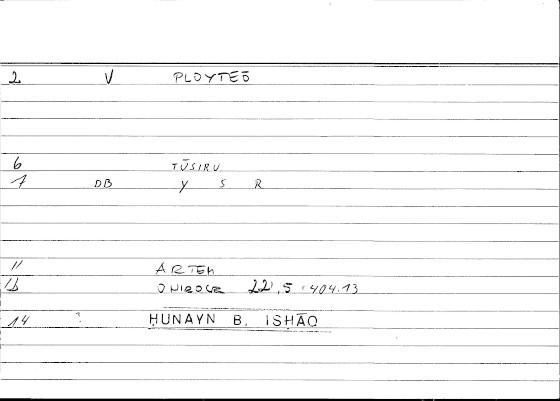 2 V PLOYTEŌ
6 TŪSIRU
7 DB Y S R
11 ARTEM
ONIROCR 22,5 404.13
14 ? ḤUNAYN B. ISḤĀQ